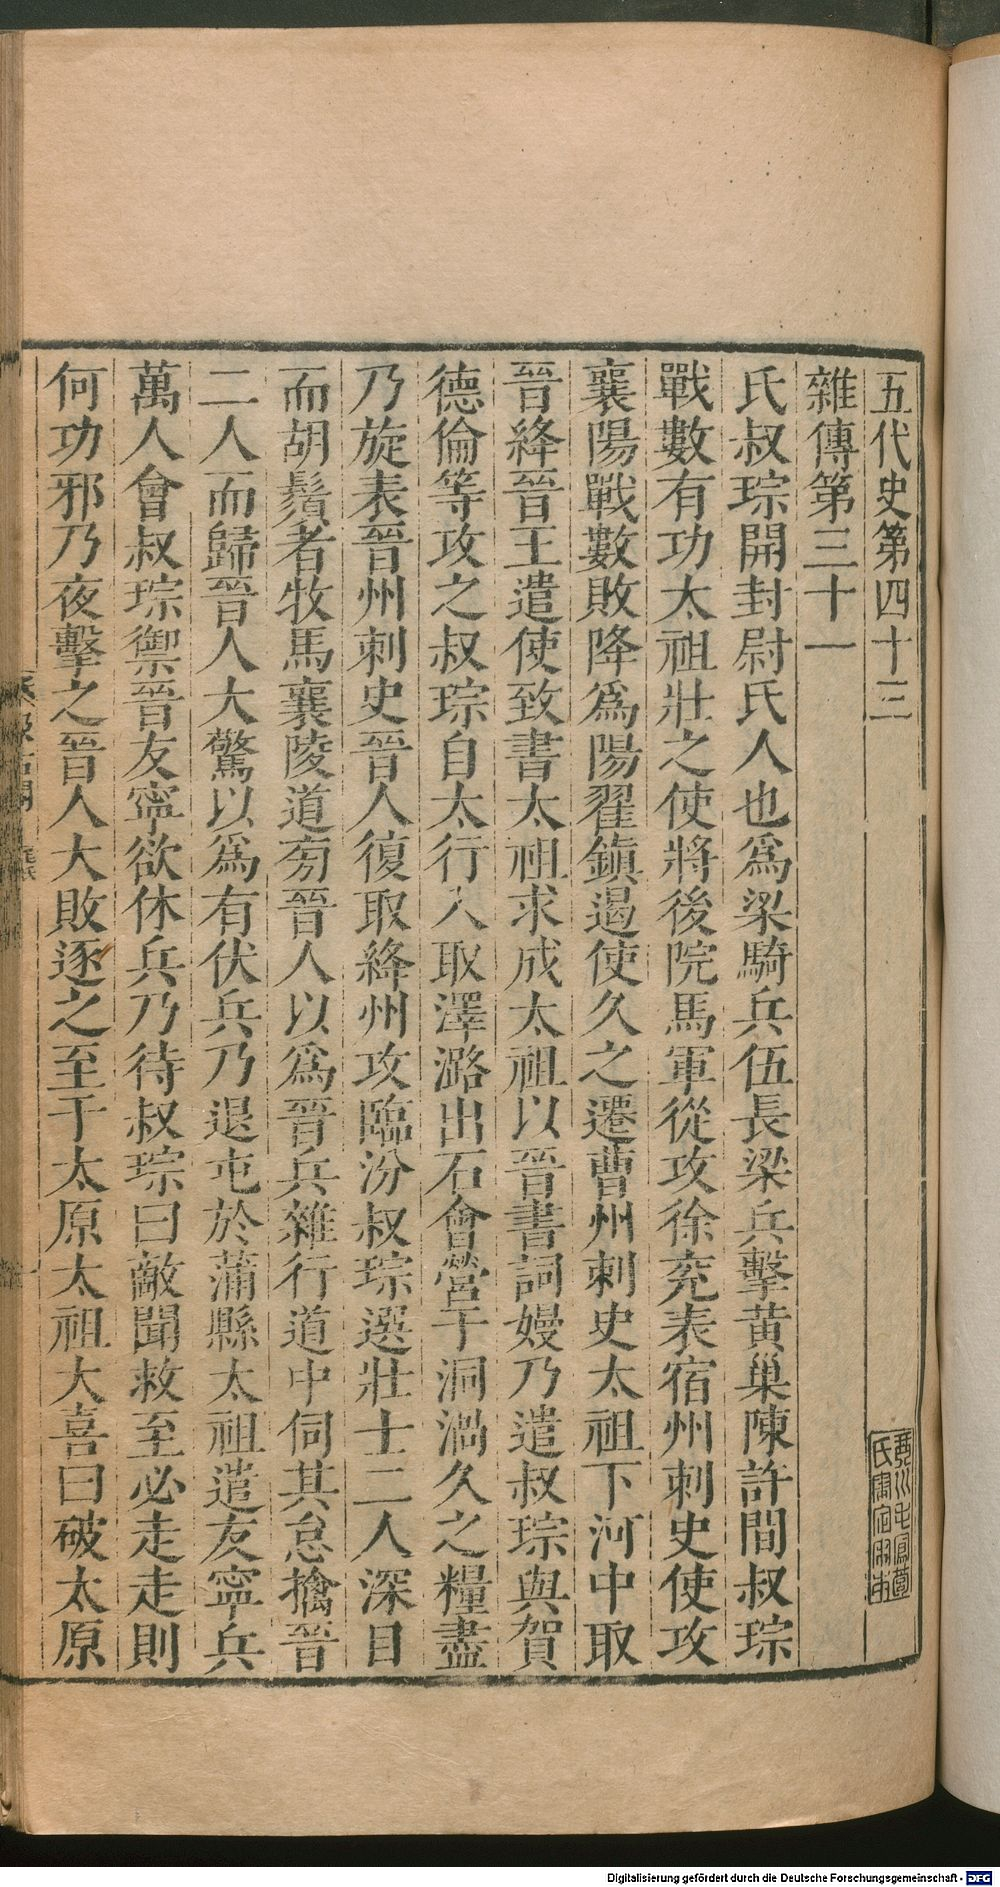 五代史第四十三
雜傳第三十一
氏叔琮開封尉氏人也爲梁騎兵伍長梁兵擊黃巢陳許間叔琮
戰數有功太祖壯之使將後院馬軍從攻徐兖表宿州刺史使攻
襄陽戰數敗降爲陽翟鎮遏使久之遷曹州刺史太祖下河中取
晉絳晉王遣使致書太祖求成太祖以晉書詞嫚乃遣叔琮與賀
德倫等攻之叔琮自太行入取澤潞出石會營于洞渦久之糧盡
乃旋表晉州刺史晉人復取絳州攻臨汾叔琮選壯士二人深目
而胡鬚者牧馬襄陵道旁晉人以爲晉兵雜行道中伺其怠擒晉
二人而歸晉人大驚以爲有伏兵乃退屯於蒲縣太祖遣友寧兵
萬人會叔琮禦晉友寧欲休兵乃待叔琮曰敵聞救至必走走則
何功邪乃夜擊之晉人大敗逐之至于太原太祖大喜曰破太原
Digitalisierung gefördert durch die Deutsche Forschungsgemeinschaft - DFG